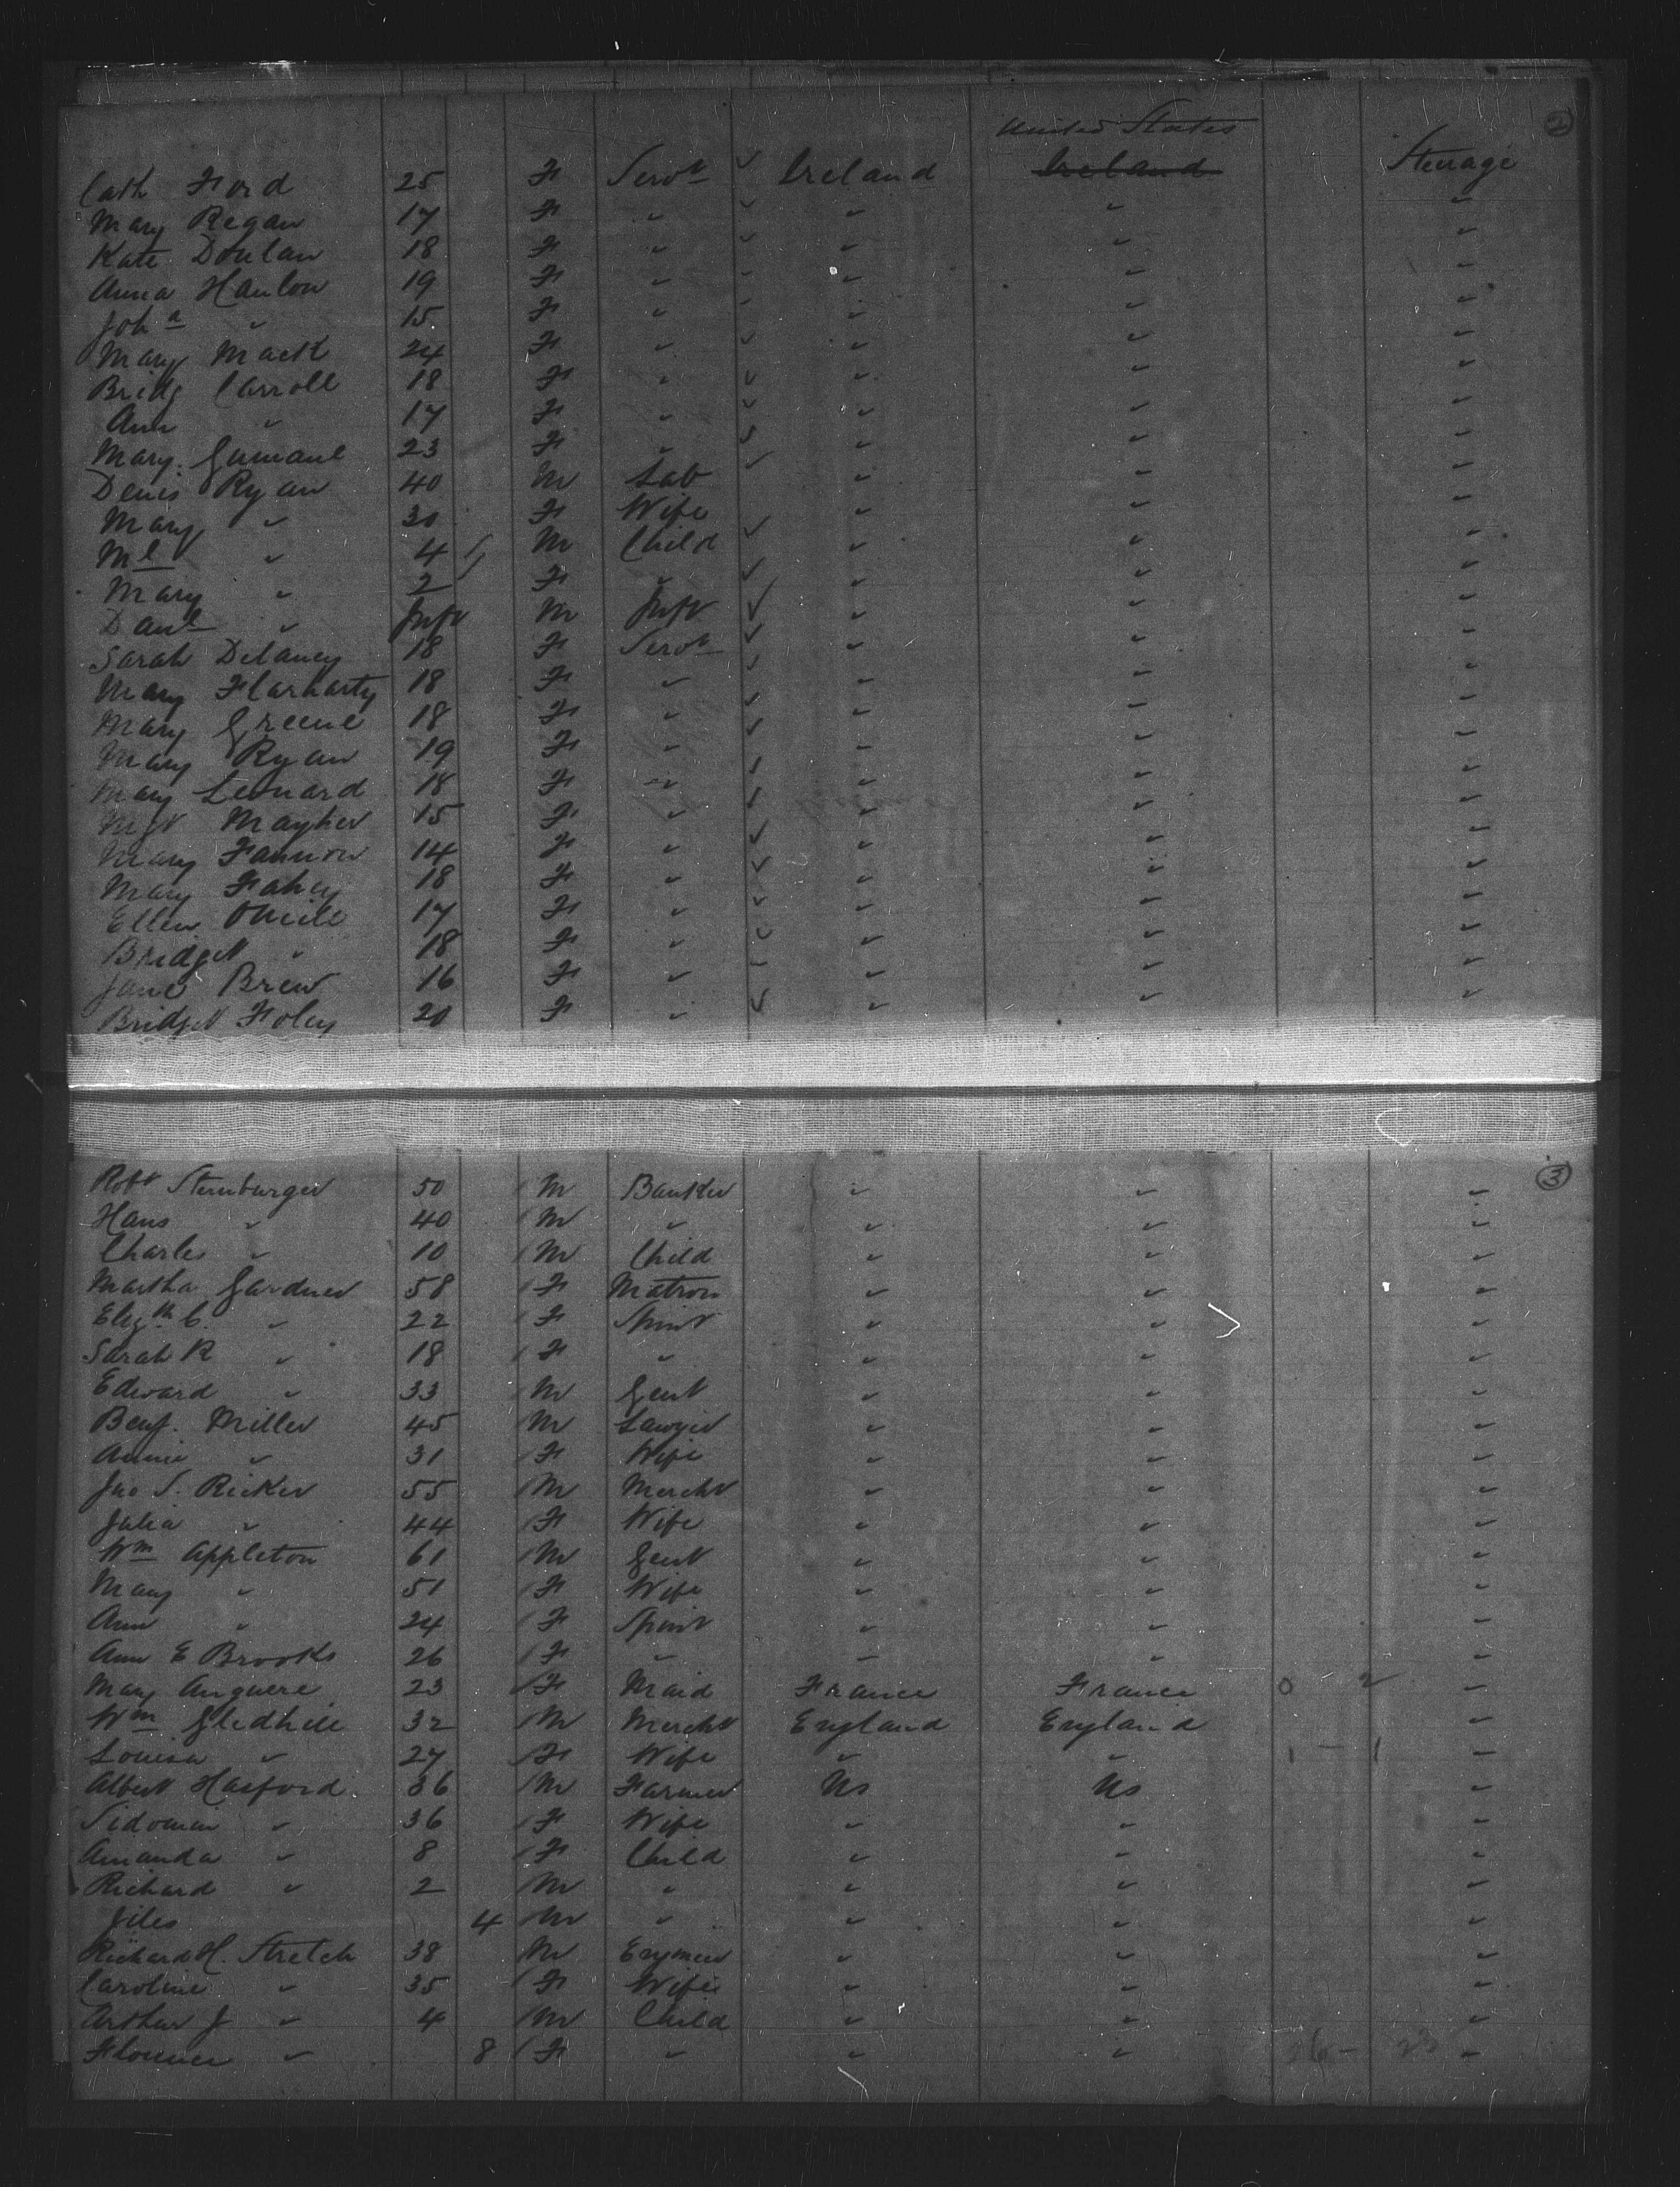 United States 2
Cath Ford 25 F Servt Ireland Ireland Steerage
Mary Regan 17 F " " " "
Kate Donlan 18 F " " " "
Anna Hanlon 19 F " " " "
Joha " 15 F " " " "
Mary Mack 24 F " " " "
Bridg Carroll 18 F " " " "
Ann " 17 F " " " "
Mary 23 F " " " "
Denis Ryan 40 M Lab " " "
Mary " 30 F Wife " " "
Ml " 4 M Child " " "
Mary " 2 F " " " "
Danl " Inft M Inft " " "
Sarah Delaney 18 F Servt " " "
Mary Flarharty 18 F " " " "
Mary Greene 18 F " " " "
Mary Ryan 19 F " " " "
Mary Leonard 18 F " " " "
Mgt Mayher 15 F " " " "
Mary Fannon 14 F " " " "
Mary Fahey 18 F " " " "
Ellen ONeill 17 F " " " "
Bridget " 18 F " " " "
Jane Brew 16 F " " " "
Bridget Foley 20 F " " " "
3
Robt Sternburger 50 M Banker " " "
Hans " 40 M " " " "
Charles " 10 M Child " " "
Martha Gardner 58 F Matron " " "
Elizth C. " 22 F Spinr " " "
Sarah R " 18 F " " " "
Edward " 33 M Gent " " "
Benj. Miller 45 M Lawyer " " "
Annie " 31 F Wife " " "
Jno S. Ricker 55 M Mercht " " "
Julia " 44 F Wife " " "
Wm Appleton 61 M Gent " " "
Mary " 51 F Wife " " "
Ann " 24 F Spinr " " "
Ann E Brooks 26 F " " " "
Mary Anguere 23 F Maid France France 0 2 "
Wm Gledhill 32 M Mercht England England "
Louisa " 27 F Wife " " 1 - 1 "
Albert Hasford 36 M Farmer Us Us "
Sidonia " 36 F Wife " " "
Amanda " 8 F Child " " "
Richard " 2 M " " " "
Jiles 4 M " " " "
Richard H. Stretch 38 M Engineer " " "
Caroline " 35 F Wife " " "
Arthur J " 4 M Child " " "
Florence " 8 F " " " "